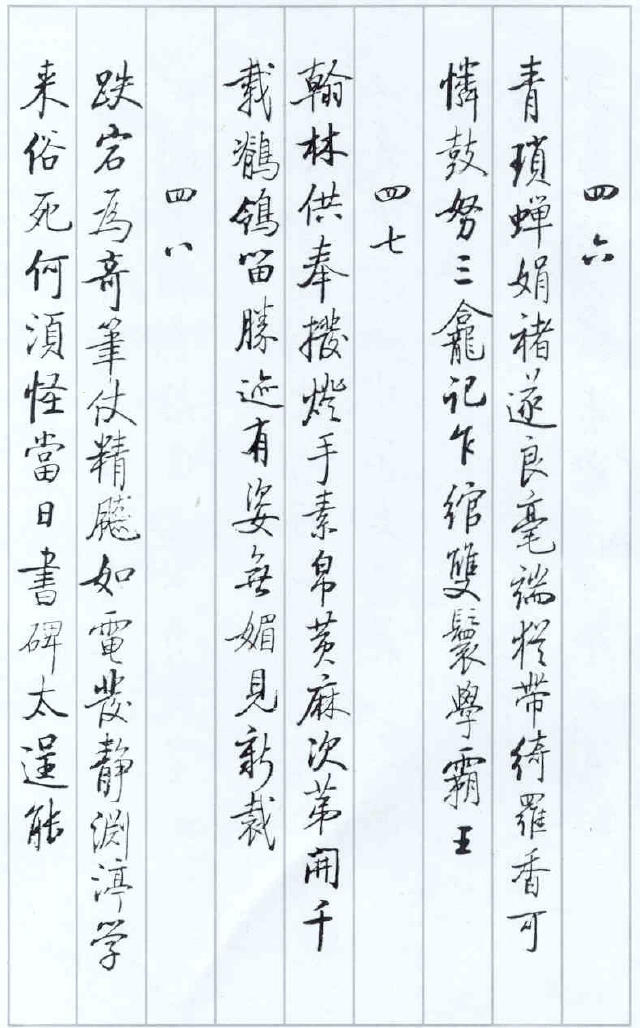 四六
青瑣蝉娟褚遂良毫端猶带綺羅香可
憐鼓努三龕記乍綰雙鬟學霸王
四七
翰林供奉撥燈手素帛黄麻次苐開千
載鶺鴒留勝迹有姿無媚見新裁
四八
跌宕為奇筆仗精飈如電發静淵渟学
来俗死何須怪當日書碑太逞能